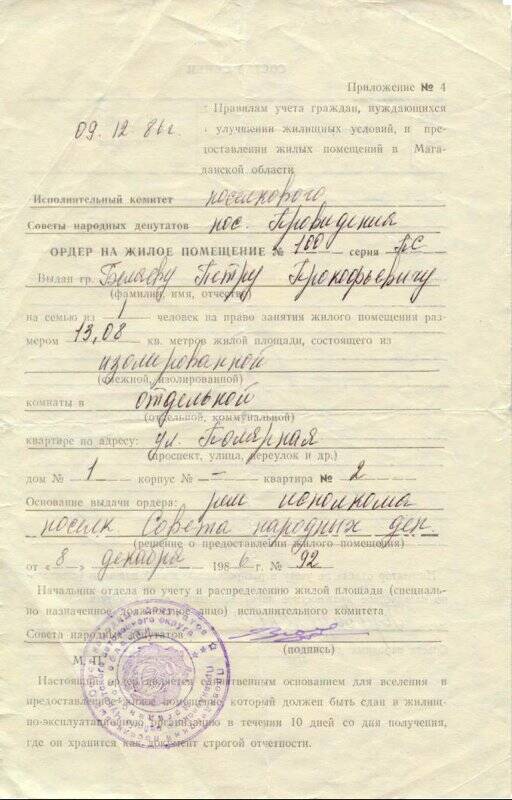 Приложение № 4
09.12.86г.
Правилам учета граждан, нуждающихся
улучшении жилищных условий, и пре-
доставлении жилых помещений в Мага-
данской области
Исполнительный комитет поселкового
Советы народных депутатов пос. Провидения
ОРДЕР НА ЖИЛОЕ ПОМЕЩЕНИЕ № 100 серия ПС
Выдан гр. Беляеву Петру Прокофьевичу
(фамилия, имя, отчество)
на семью из 1 человек на право занятия жилого помещения раз-
мером 13,08 кв. метров жилой площади, состоящего из
изолированной
(смежной, изолированной)
комнаты в отдельной
(отдельной, коммунальной)
квартире по адресу: ул. Полярная
(проспект, улица, переулок и др.)
дом № 1 корпус № — квартира № 2
Основание выдачи ордера: реш исполкома
поселк Совета народных деп.
(решение о предоставлении жилого помещения)
от «8» декабря 1986 г. № 92
Начальник отдела по учету и распределению жилой площади (специаль-
но назначенное должностное лицо) исполнительного комитета
Совета народных депутатов
(подпись)
М. П.
Настоящий ордер является единственным основанием для вселения в
предоставленное жилое помещение, который должен быть сдан в жилищ-
но-эксплуатационную организацию в течении 10 дней со дня получения,
где он хранится как документ строгой отчетности.